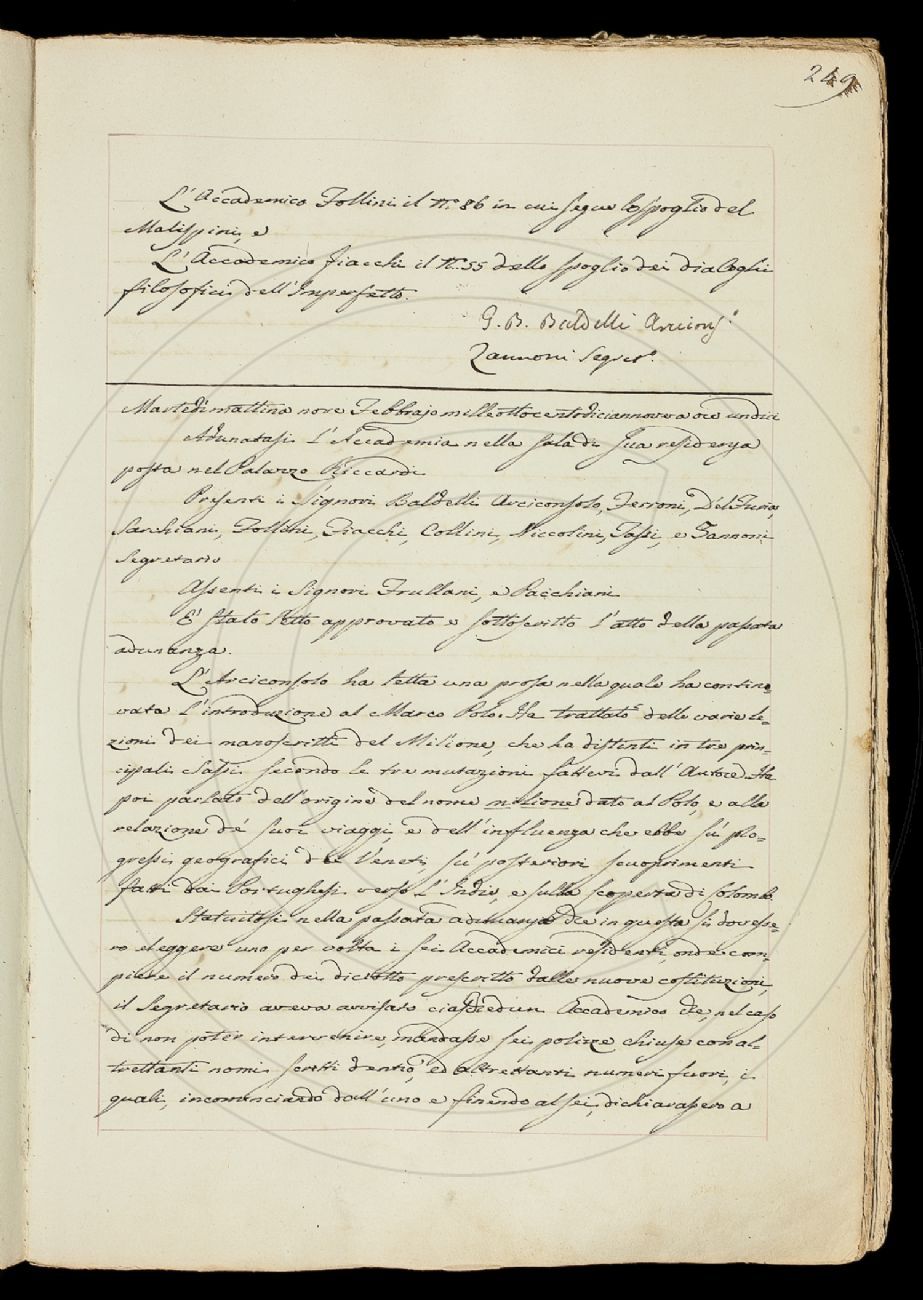 249
L'Accademico Follini il N.° 86 in cui segue lo spoglio del
Malispini, e
L'Accademico Fiacchi il N.° 55 dello spoglio dei dialoghi
filosofici dell'Imperfetto.
G. B. Baldelli Arcicons.°
Zannoni Segret.°
Martedì mattina nove Febbrajo milleottocentodiciannove a ore undici
Adunatasi l'Accademia nella sala di sua residenza
posta nel Palazzo Riccardi
Presenti i Signori Baldelli Arciconsolo, Ferroni, Del Furia,
Sarchiani, Follini, Fiacchi, Collini, Niccolini, Tassi, e Zannoni
Segretario
Assenti i Signori Frullani, e Pacchiani
È stato letto approvato e sottoscritto l'atto della passata
adunanza.
L'Arciconsolo ha letta una prosa nella quale ha contino-
vata l'introduzione al Marco Polo. Ha trattato delle varie le-
zioni dei manoscritti del Milione, che ha distinti in tre prin-
cipali classi secondo le tre mutazioni fattevi dall'Autore. Ha
poi parlato dell'origine del nome milione dato al Polo, e alla
relazione de' suoi viaggi, e dell'influenza che ebbe su' pro-
gressi geografici de' Veneti, su' posteriori scuoprimenti
fatti dai Portughesi verso l'Indie, e sulla scoperta di Colombo.
Statuitosi nella passata adunanza che in questa si dovesse-
ro eleggere uno per volta i sei Accademici residenti, onde com-
piere il numero dei diciotto prescritto dalle nuove costituzioni,
il Segretario aveva avvisato ciaschedun Accademico che, nel caso
di non poter intervenire, mandasse sei polizze chiuse con al-
trettanti nomi scritti dentro, ed altrettanti numeri fuori, i
quali, incominciando dall'uno e finendo al sei, dichiarassero a